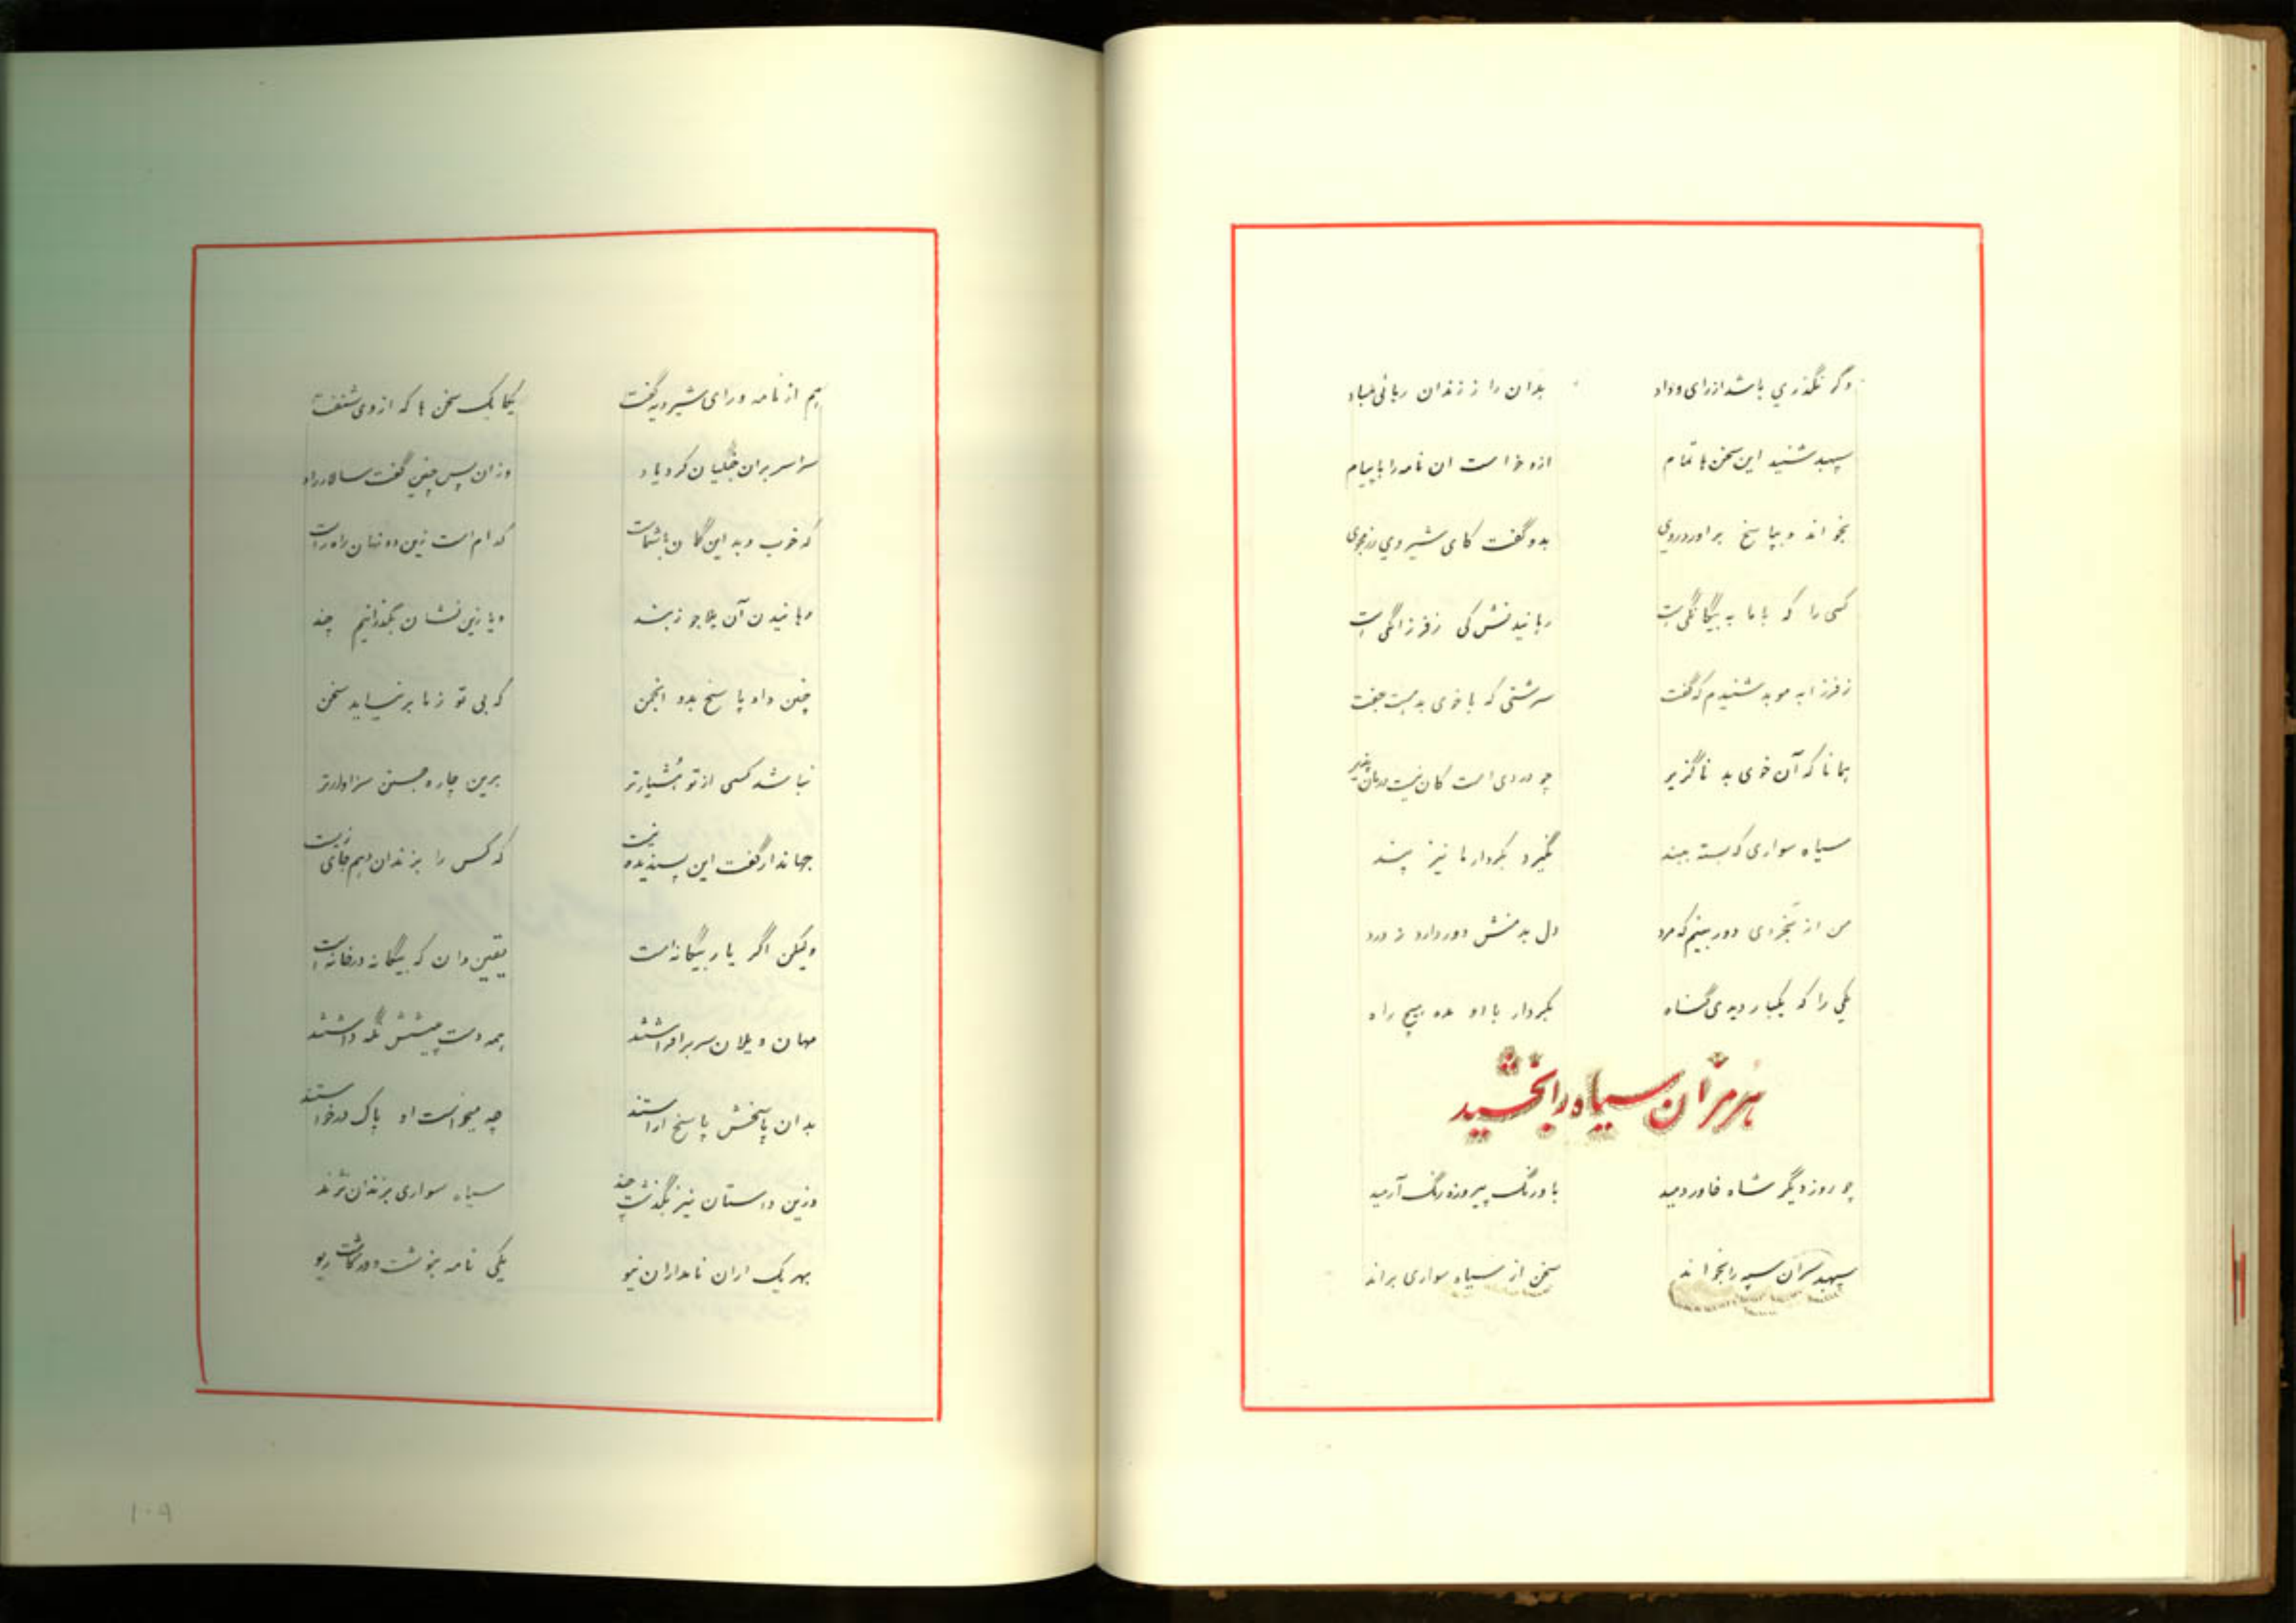 وگر نگذری باشد از رای و داد    بدان را ز زندان رهائی مباد
سپهبد شنید این سخن ها تمام    ازو خواست ان نامه را با پیام
بخواند و بپاسخ براورد روی    بدو گفت کای شیروی رزمجوی
کسی را که با ما به بیگانگی است    رهانیدنش کی ز فرزانگی است
ز فرزانه موبد شنیدم که گفت    سرشتی که با خوی بد هست جفت
همانا که آن خوی بد ناگزیر    چو دردی است کان نیست درمان پذیر
سیاه سواری که بسته ببند    نگیرد بکردارها نیز پند
من از بخردی دور بینم که مرد    دل بدمنش دور دارد ز درد
یکی را که یکبار دیدی گناه    بکردار با او مده هیچ راه
هرمزان سیاه را بخشید
چو روز دیگر شاه خاور دمید    با ورنگ پیروزه رنگ آرمید
سپهبد سران سپه را بخواند    سخن از سیاه سواری براند
هم از نامه و رای شیرویه گفت    یکایک سخن ها که از وی شنفت
سراسر بران خیلیان کرد یاد    وزان پس چنین گفت سالار راد
که خوب و بد این گمان با شماست    کدام است زین دو نهان راه راست
رهانیدن آن بلاجو ز بند    ویا زین نشان بگذرانیم چند
چنین داد پاسخ بدو انجمن    که بی تو ز ما بر نیاید سخن
نباشد کسی از تو هشیارتر    برین چاره جستن سزاوارتر
جهاندار گفت این پسندیده نیست    که کس را بزندان دهم جای زیست
ولیکن اگر یار بیگانه است    یقین دان که بیگانه در خانه است
مهان و یلان سر برافراشتند    همه دست پیشش نگه داشتند
بدان پاسخش پاسخ اراستند    چه میخواست او پاک درخواستند
وزین داستان نیز بگذشت چند    سیاه سواری بزندان نژند
بهر یک از ان نامداران نیو    یکی نامه بنوشت
۱۰۹